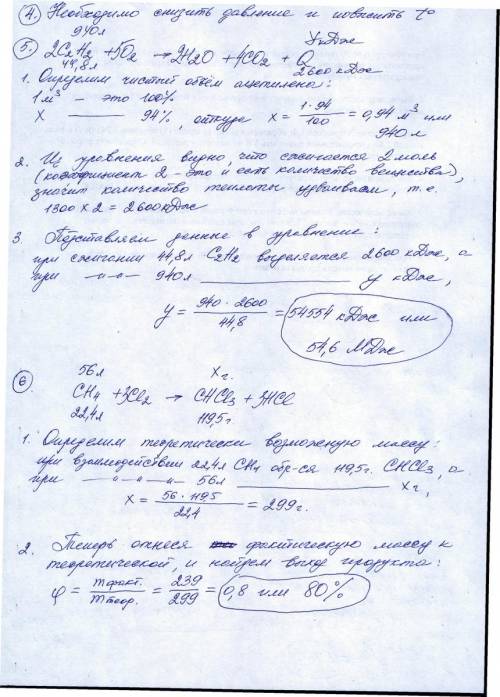 4. Необходимо снизить давление и повысить t°
940л                                    У кДж
5. 2C₂H₂ + 5O₂ → 2H₂O + 4CO₂ + Q
44,8л                                   2600 кДж
1. Определим чистый объём ацетилена:
1 м³ — это 100%
x —— 94% , откуда x = 1·94/100 = 0,94 м³ или
940 л
2. Из уравнения видно, что сжигается 2 моль
(коэффициент 2 - это и есть количество вещества),
значит количество теплоты удваиваем, т.е.
1300 × 2 = 2600 кДж
3. Подставляем данные в уравнение:
при сжигании 44,8л C₂H₂ выделяется 2600 кДж, а
при —"—"— 940л —— y кДж,
y = 940 · 2600/44,8 = 54554 кДж или
54,6 МДж
56л                 xг.
6. CH₄ + 3Cl₂ → CHCl₃ + 3HCl
22,4л               119,5г
1. Определим теоретически возможную массу:
при взаимодействии 22,4л CH₄ обр-ся 119,5г. CHCl₃, а
при —"—"—"— 56л —— xг,
x = 56 · 119,5/22,4 = 299г.
2. Теперь отнеся фактическую массу к
теоретической, и найдем выход продукта:
φ = mфакт./mтеор. = 239/299 = 0,8 или 80%